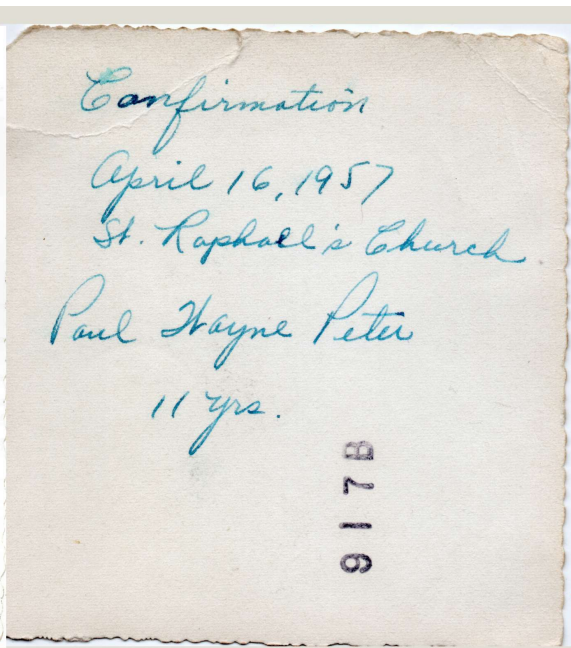 Confirmation
April 16, 1957
St. Raphall's Church
Paul Wayne Peter
11 yrs.
917B